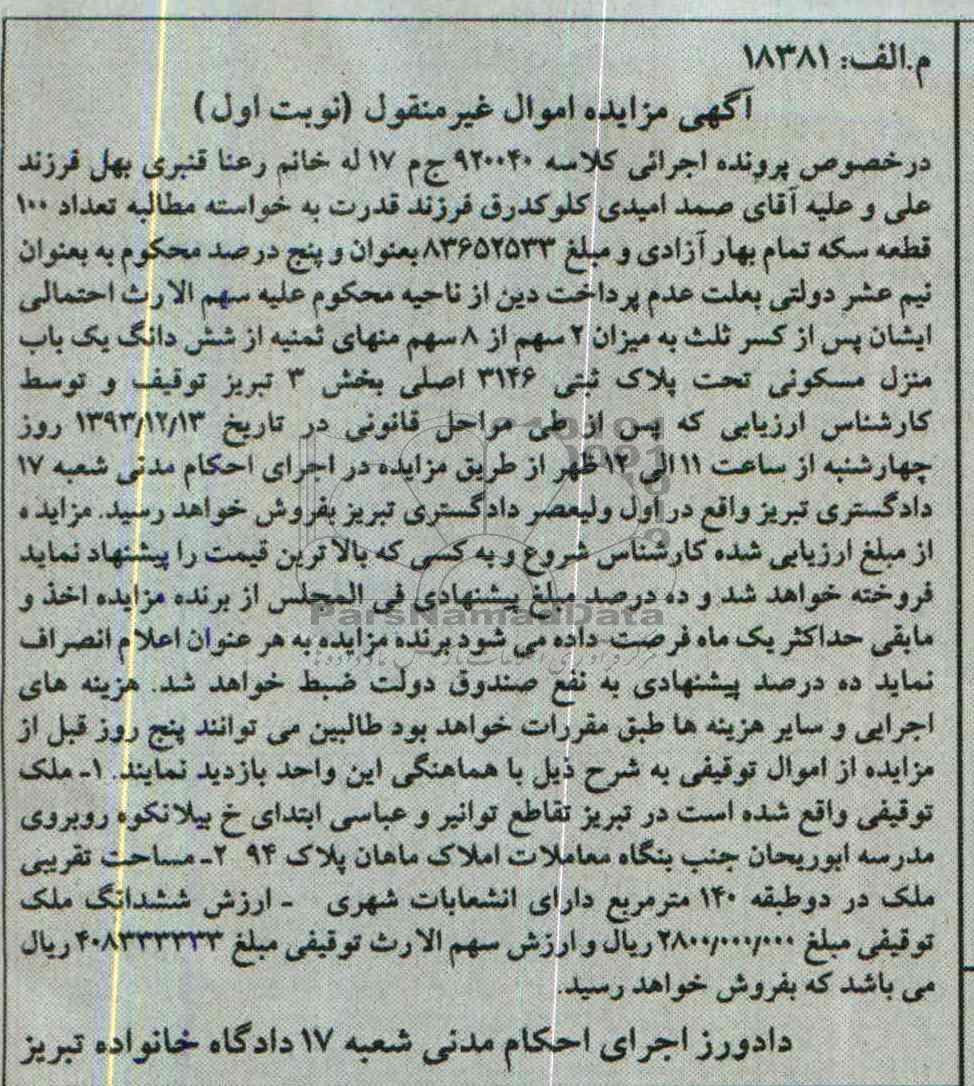 م.الف: ۱۸۳۸۱
آگهی مزایده اموال غیرمنقول (نوبت اول)
درخصوص پرونده اجرائی کلاسه ۹۲۰۰۴۰ ج‌م ۱۷ له خانم رعنا قنبری بهل فرزند
علی و علیه آقای صمد امیدی کلوکدرق فرزند قدرت به خواسته مطالبه تعداد ۱۰۰
قطعه سکه تمام بهار آزادی و مبلغ ۸۳۶۵۲۵۳۳ بعنوان و پنج درصد محکوم به بعنوان
نیم عشر دولتی بعلت عدم پرداخت دین از ناحیه محکوم علیه سهم الارث احتمالی
ایشان پس از کسر ثلث به میزان ۲ سهم از ۸ سهم منهای ثمنیه از شش دانگ یک باب
منزل مسکونی تحت پلاک ثبتی ۳۱۴۶ اصلی بخش ۳ تبریز توقیف و توسط
کارشناس ارزیابی که پس از طی مراحل قانونی در تاریخ ۱۳۹۳/۱۲/۱۳ روز
چهارشنبه از ساعت ۱۱ الی ۱۲ ظهر از طریق مزایده در اجرای احکام مدنی شعبه ۱۷
دادگستری تبریز واقع در اول ولیعصر دادگستری تبریز بفروش خواهد رسید. مزایده
از مبلغ ارزیابی شده کارشناس شروع و به کسی که بالاترین قیمت را پیشنهاد نماید
فروخته خواهد شد و ده درصد مبلغ پیشنهادی فی المجلس از برنده مزایده اخذ و
مابقی حداکثر یک ماه فرصت داده می شود برنده مزایده به هر عنوان اعلام انصراف
نماید ده درصد پیشنهادی به نفع صندوق دولت ضبط خواهد شد. هزینه های
اجرایی و سایر هزینه ها طبق مقررات خواهد بود طالبین می توانند پنج روز قبل از
مزایده از اموال توقیفی به شرح ذیل با هماهنگی این واحد بازدید نمایند. ۱- ملک
توقیفی واقع شده است در تبریز تقاطع توانیر و عباسی ابتدای خ بیلانکوه روبروی
مدرسه ابوریحان جنب بنگاه معاملات املاک ماهان پلاک ۹۴ ۲- مساحت تقریبی
ملک در دوطبقه ۱۴۰ مترمربع دارای انشعابات شهری - ارزش ششدانگ ملک
توقیفی مبلغ ۲۸۰۰/۰۰۰/۰۰۰ ریال و ارزش سهم الارث توقیفی مبلغ ۴۰۸۳۳۳۳۳۳ ریال
می باشد که بفروش خواهد رسید.
دادورز اجرای احکام مدنی شعبه ۱۷ دادگاه خانواده تبریز
ParsNamadData